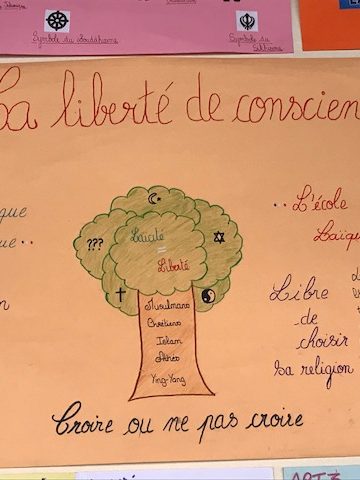 Symbole du Bouddhisme
Symbole du
Sikhisme
La liberté de conscien
que
ue..
..L'école
Laïqu
???
Laïcité
=
Liberté
Musulmans
Chrétiens
Islam
Athée
Ying-Yang
Libre
de
choisir
sa religion
Croire ou ne pas croire